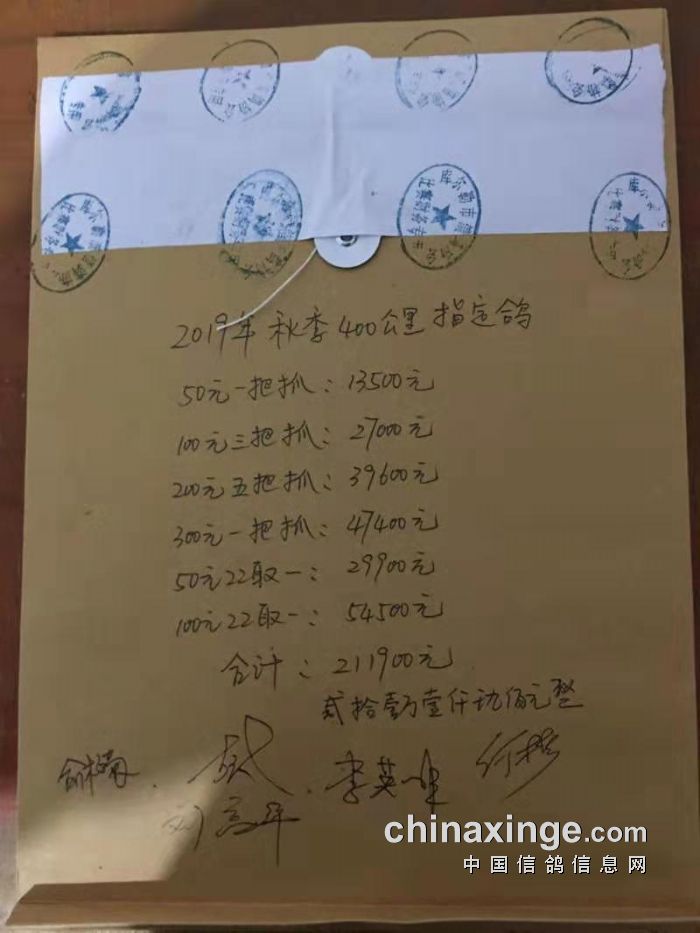 库尔勒市
比赛鸽
2019年 秋季400公里指定鸽
50元一把抓：13500元
100元三把抓：27000元
200元五把抓：39600元
300元一把抓：47400元
50元22取一：29900元
100元22取一：54500元
合计：211900元
贰拾壹万壹仟玖佰元整
李英
chinaxinge.com
中国信鸽信息网